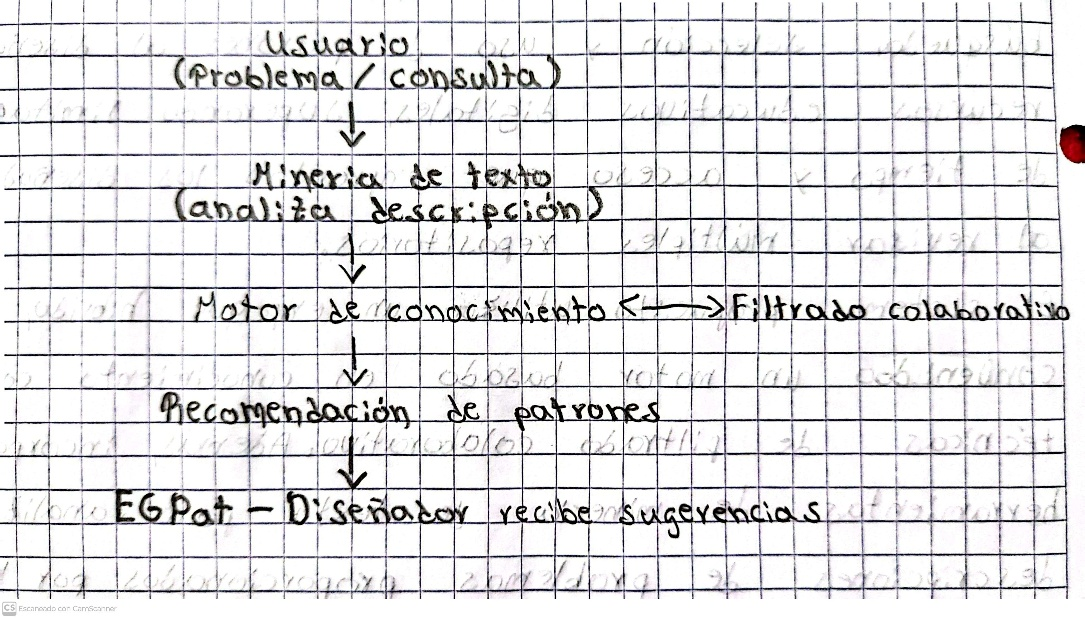 Usuario
(Problema / consulta)
↓
Mineria de texto
(analiza descripción)
↓
Motor de conocimiento <—> Filtrado colaborativo
↓
Recomendación de patrones
↓
EGPat - Diseñador recibe sugerencias
CS Escaneado con CamScanner